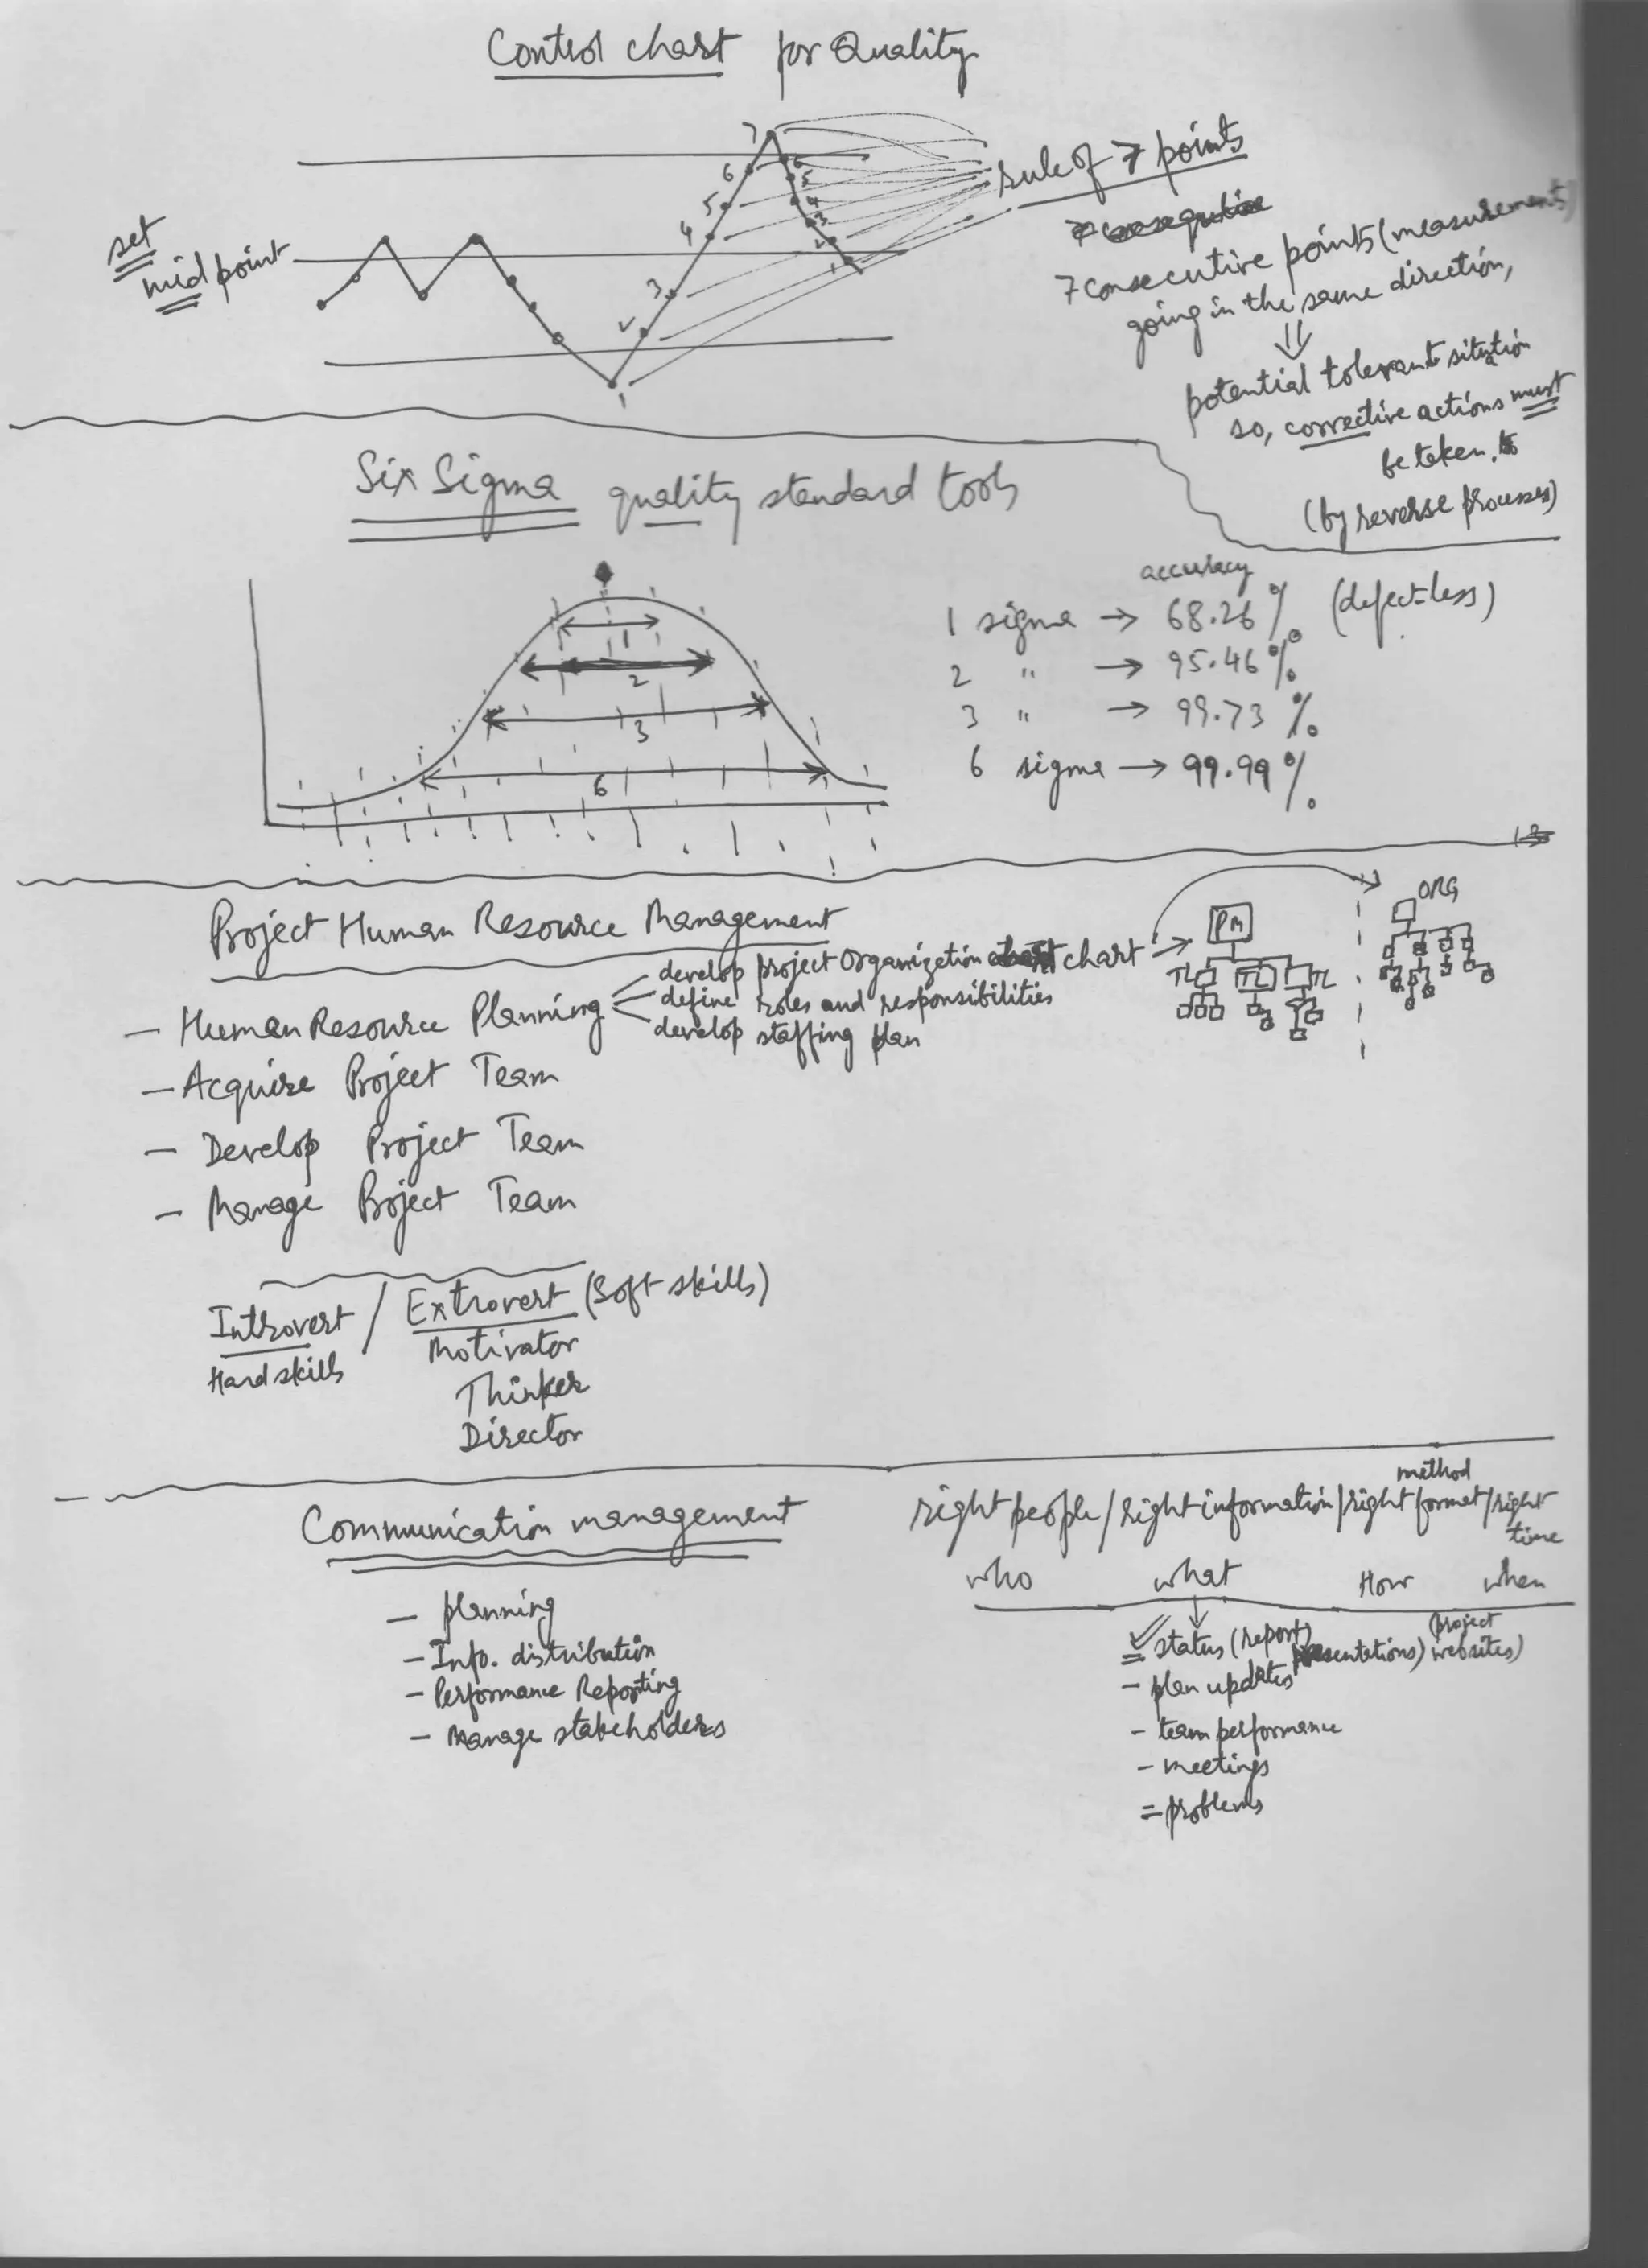 Control chart for Quality
7
6
5
4
3
2
1
6
5
4
3
2
1
set
midpoint
rule of 7 points
7 consecutive points (measurements)
going in the same direction,
⇓
potential tolerant situation
so, corrective actions must
be taken.
(by reverse processes)
Six Sigma quality standard tools
1
2
3
6
accuracy
1 sigma → 68.26% (defect-less)
2 " → 95.46%
3 " → 99.73%
6 sigma → 99.99%
Project Human Resource Management
— Human Resource Planning
develop project organization chart →
define roles and responsibilities
develop staffing plan
PM
TL TL TL
ORG
— Acquire Project Team
— Develop Project Team
— Manage Project Team
Introvert / Extrovert (Soft skills)
Hard skills
Motivator
Thinker
Director
Communication management
— planning
— Info. distribution
— Performance Reporting
— Manage stakeholders
method
right people/right information/right format/right
time
who what How when
status (report, presentations) (project websites)
— plan updates
— team performance
— meetings
= problems